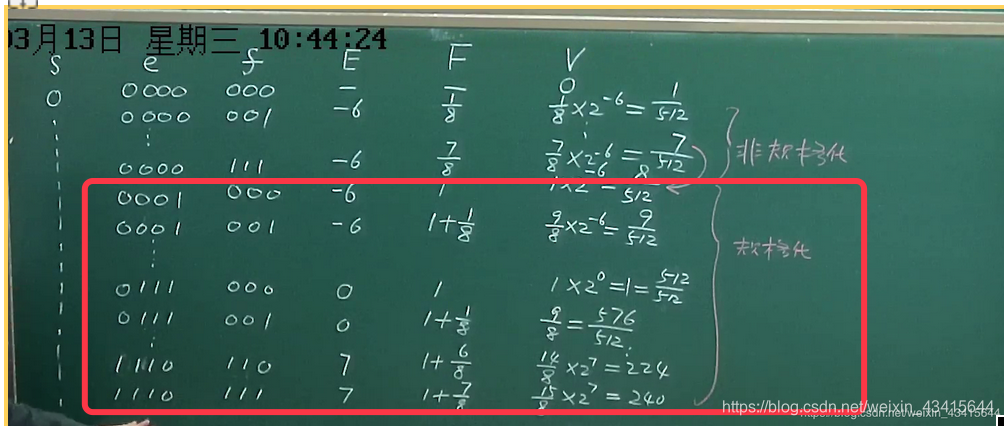 03月13日 星期三 10:44:24
S e f E F V
0 0000 000 — — 0
0000 001 -6 1/8 1/8×2^-6=1/512
⋮ ⋮
0000 111 -6 7/8 7/8×2^-6=7/512
非规格化
0001 000 -6 1 1×2^-6=8/512
0001 001 -6 1+1/8 9/8×2^-6=9/512
规格化
⋮
0111 000 0 1 1×2^0=1=512/512
0111 001 0 1+1/8 9/8=576/512
⋮ ⋮
1110 110 7 1+6/8 14/8×2^7=224
1110 111 7 1+7/8 15/8×2^7=240
https://blog.csdn.net/weixin_43415644
https://blog.csdn.net/weixin_43415644